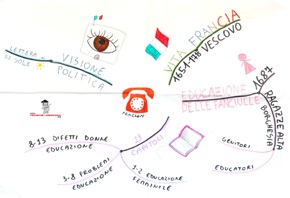 LETTERA
DI SOLE
VISIONE
POLITICA
VITA FRANCIA
VESCOVO
EDUCAZIONE
DELLE FANCIULLE
1687
RAGAZZE ALTA
BORGHESIA
GENITORI
EDUCATORI
CAPITOLI
1-2 EDUCAZIONE
FEMMINILE
3-8 PROBLEMI
EDUCAZIONE
8-13 DIFETTI DONNE
EDUCAZIONE